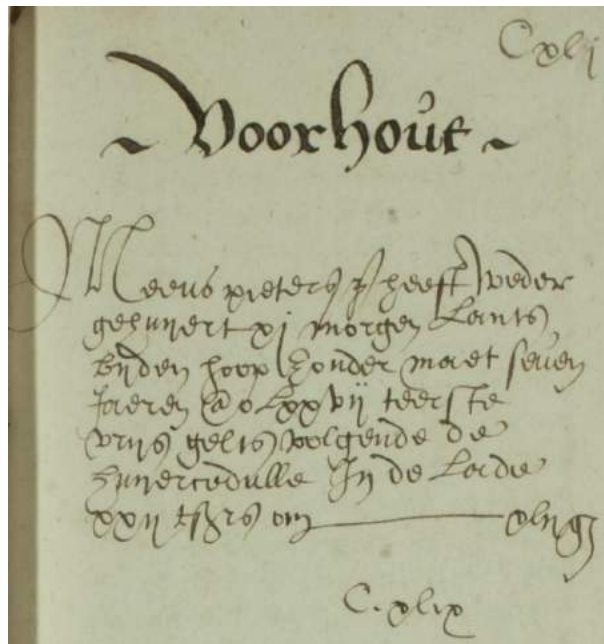 Cxlj
Voorhout
Meeus pieters z heeft weder
gehuyert xj morgen Lants
bijden hoop zonder maet seuen
Jaeren @o Lxxvij teerste
vrijs gelts volgende die
huyercedulle In de Lade
xxij
C.xlix